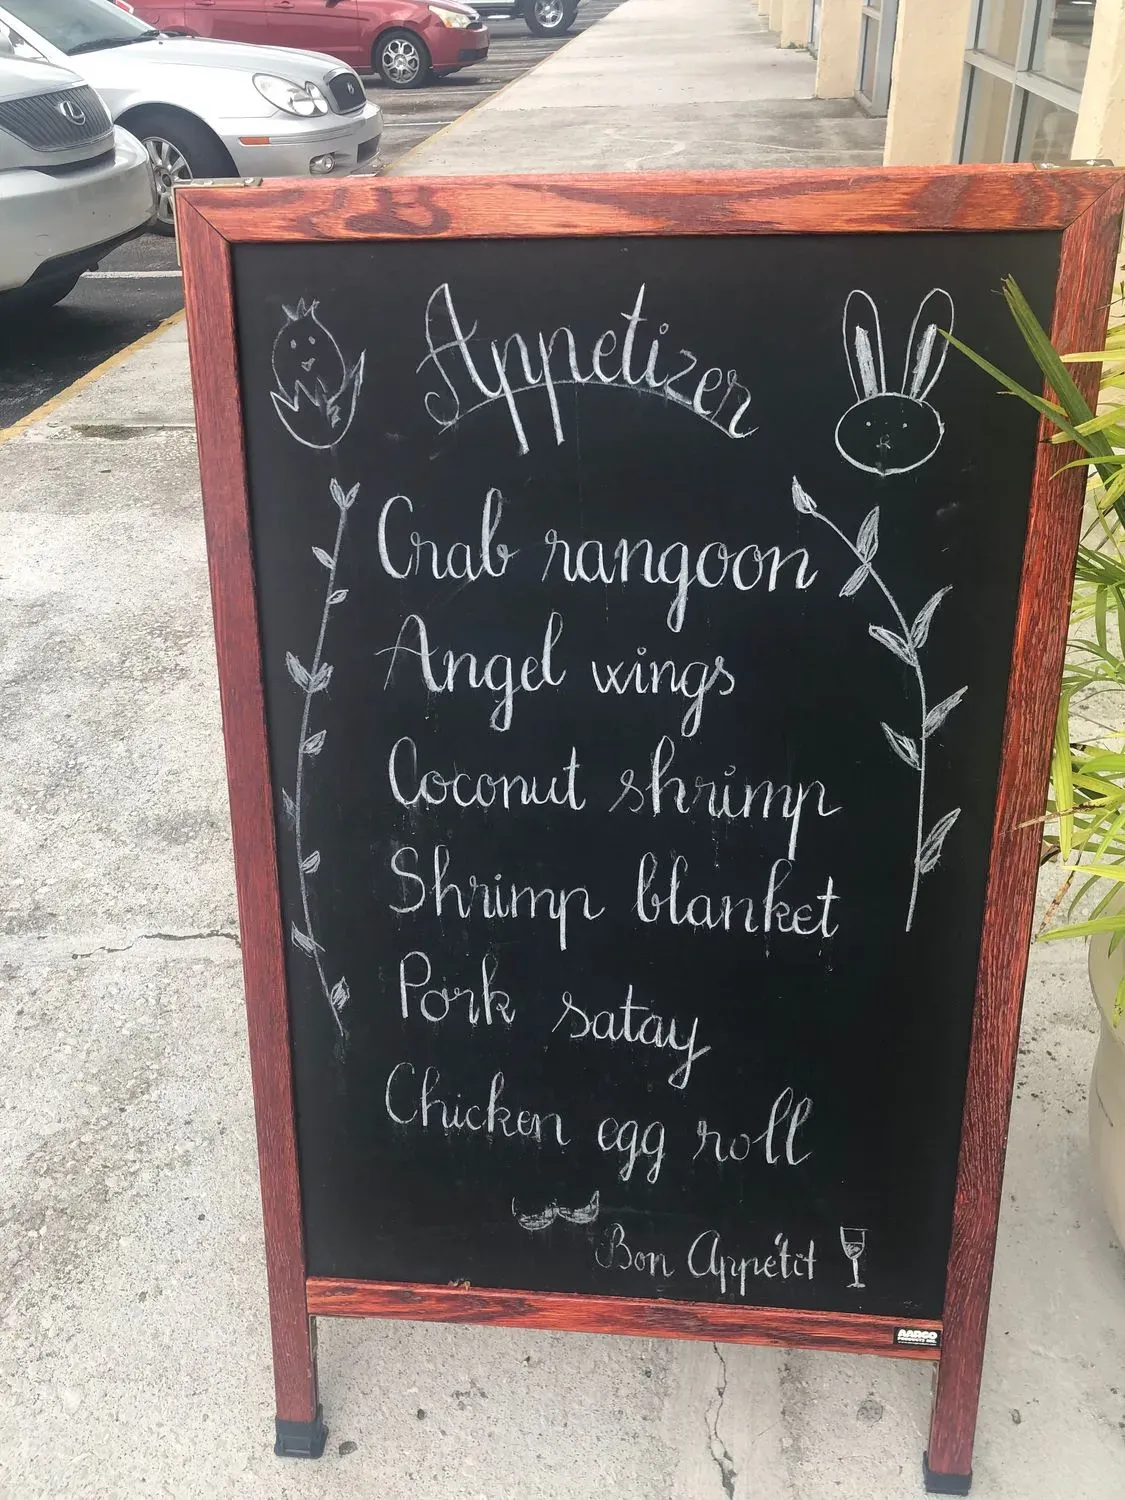 Appetizer
Crab rangoon
Angel wings
Coconut shrimp
Shrimp blanket
Pork satay
Chicken egg roll
Bon Appétit
AARCO
PRODUCTS INC.